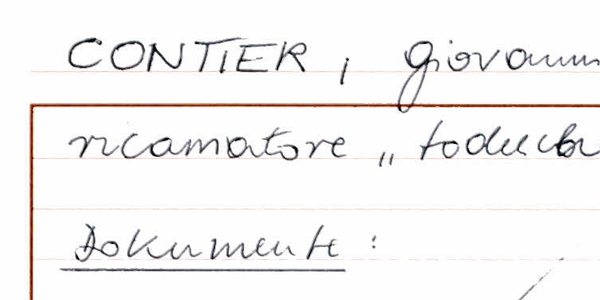 CONTIER, Giovanni
ricamatore „
Dokumente: